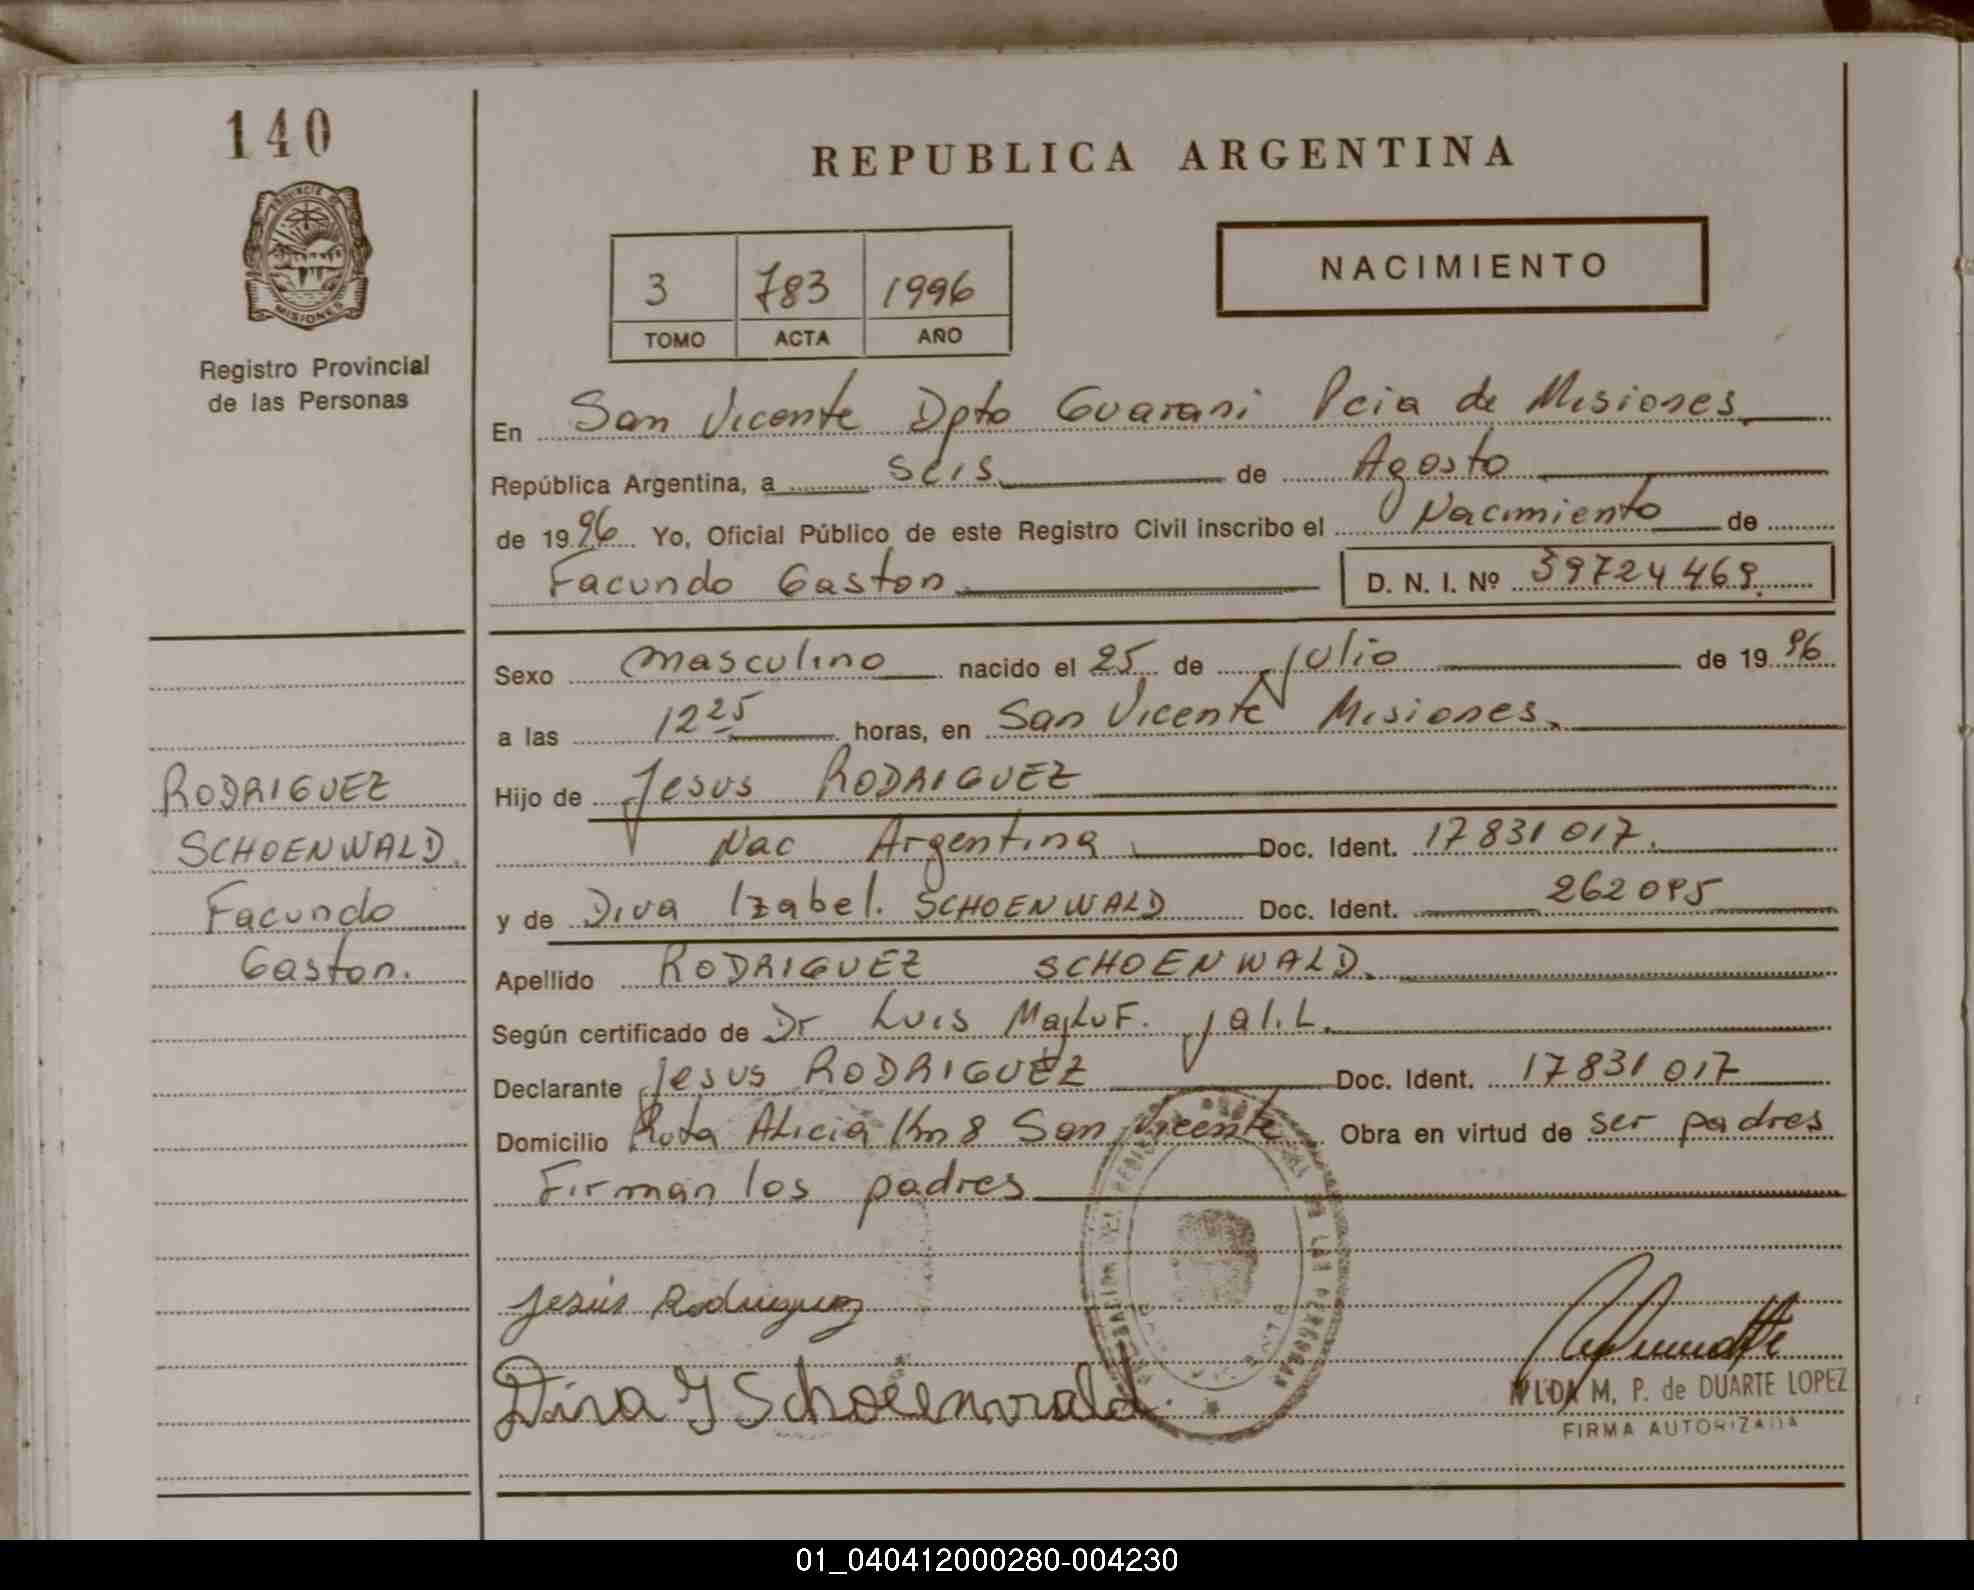 140
PROVINCIA DE
MISIONES
Registro Provincial
de las Personas
REPUBLICA ARGENTINA
3 783 1996
TOMO ACTA AÑO
NACIMIENTO
En San Vicente Dpto Guarani Pcia de Misiones
República Argentina, a seis de Agosto
de 1996 Yo, Oficial Público de este Registro Civil inscribo el Nacimiento de
Facundo Gaston D. N. I. Nº 39724469
Sexo masculino nacido el 25 de julio de 1996
a las 12 25 horas, en San Vicente Misiones
Hijo de Jesus RODRIGUEZ
Nac Argentina Doc. Ident. 17831017.
y de Diva Izabel. SCHOENWALD Doc. Ident. 262095
Apellido RODRIGUEZ SCHOENWALD
Según certificado de Dr Luis Majluf. jalil.
Declarante Jesus RODRIGUEZ Doc. Ident. 17831017
Domicilio Ruta Alicia Km 8 San Vicente Obra en virtud de ser padres
Firman los padres
RODRIGUEZ
SCHOENWALD
Facundo
Gaston.
Jesús Rodriguez
Diva I Schoeinwald.
M. P. de DUARTE LOPEZ
FIRMA AUTORIZADA
01_040412000280-004230